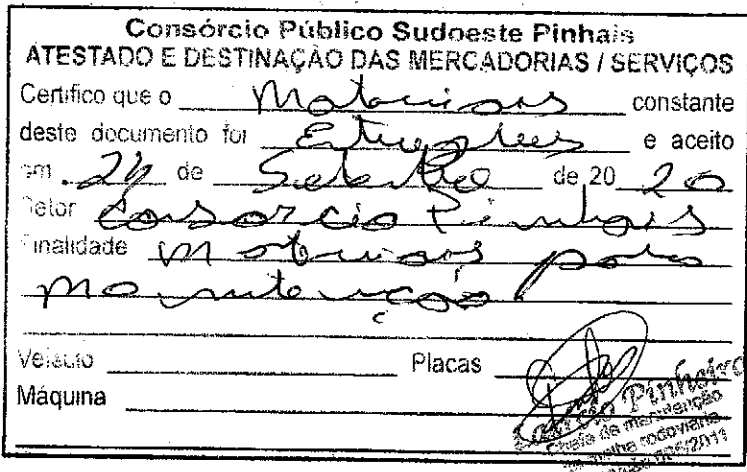 Consórcio Público Sudoeste Pinhais
ATESTADO E DESTINAÇÃO DAS MERCADORIAS / SERVIÇOS
Certifico que o Materiais constante
deste documento foi Entregues e aceito
em 24 de Setembro de 20 20
Setor Consorcio Pinhais
Finalidade Materiais para
manutenção
Veículo Placas
Máquina
Pinheiro
Chefe de manutenção
da malha rodoviária